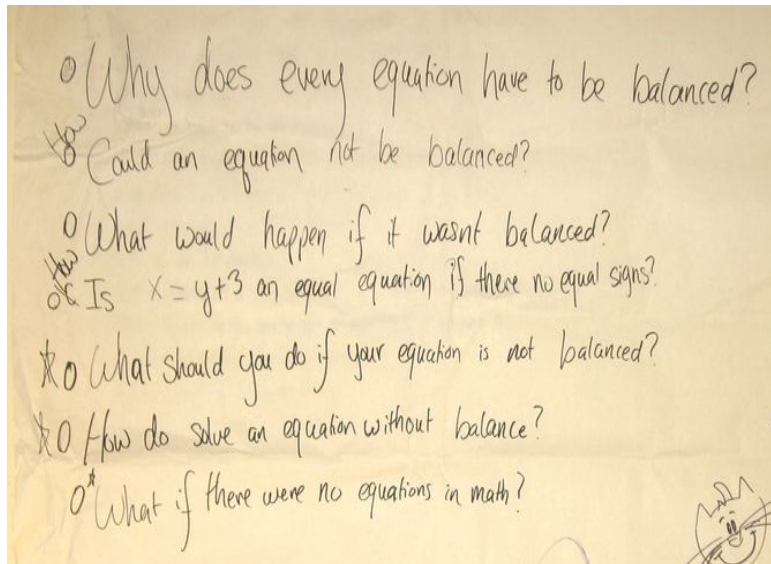 O Why does every equation have to be balanced?
How
O Could an equation not be balanced?
O What would happen if it wasnt balanced?
How
Is x = y + 3 an equal equation if there no equal signs?
* O What should you do if your equation is not balanced?
* O How do solve an equation without balance?
O * What if there were no equations in math?